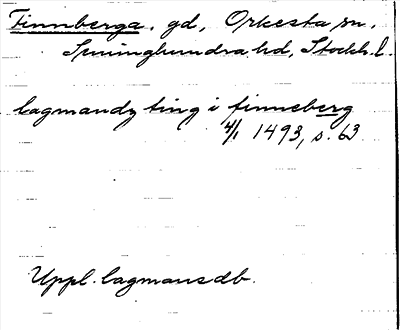 Finnberga, gd, Orkesta sn,
Seminghundra hd, Stockh. l.
lagmandz ting i finneberg
4/1 1493, s. 63
Uppl. lagmansdb.